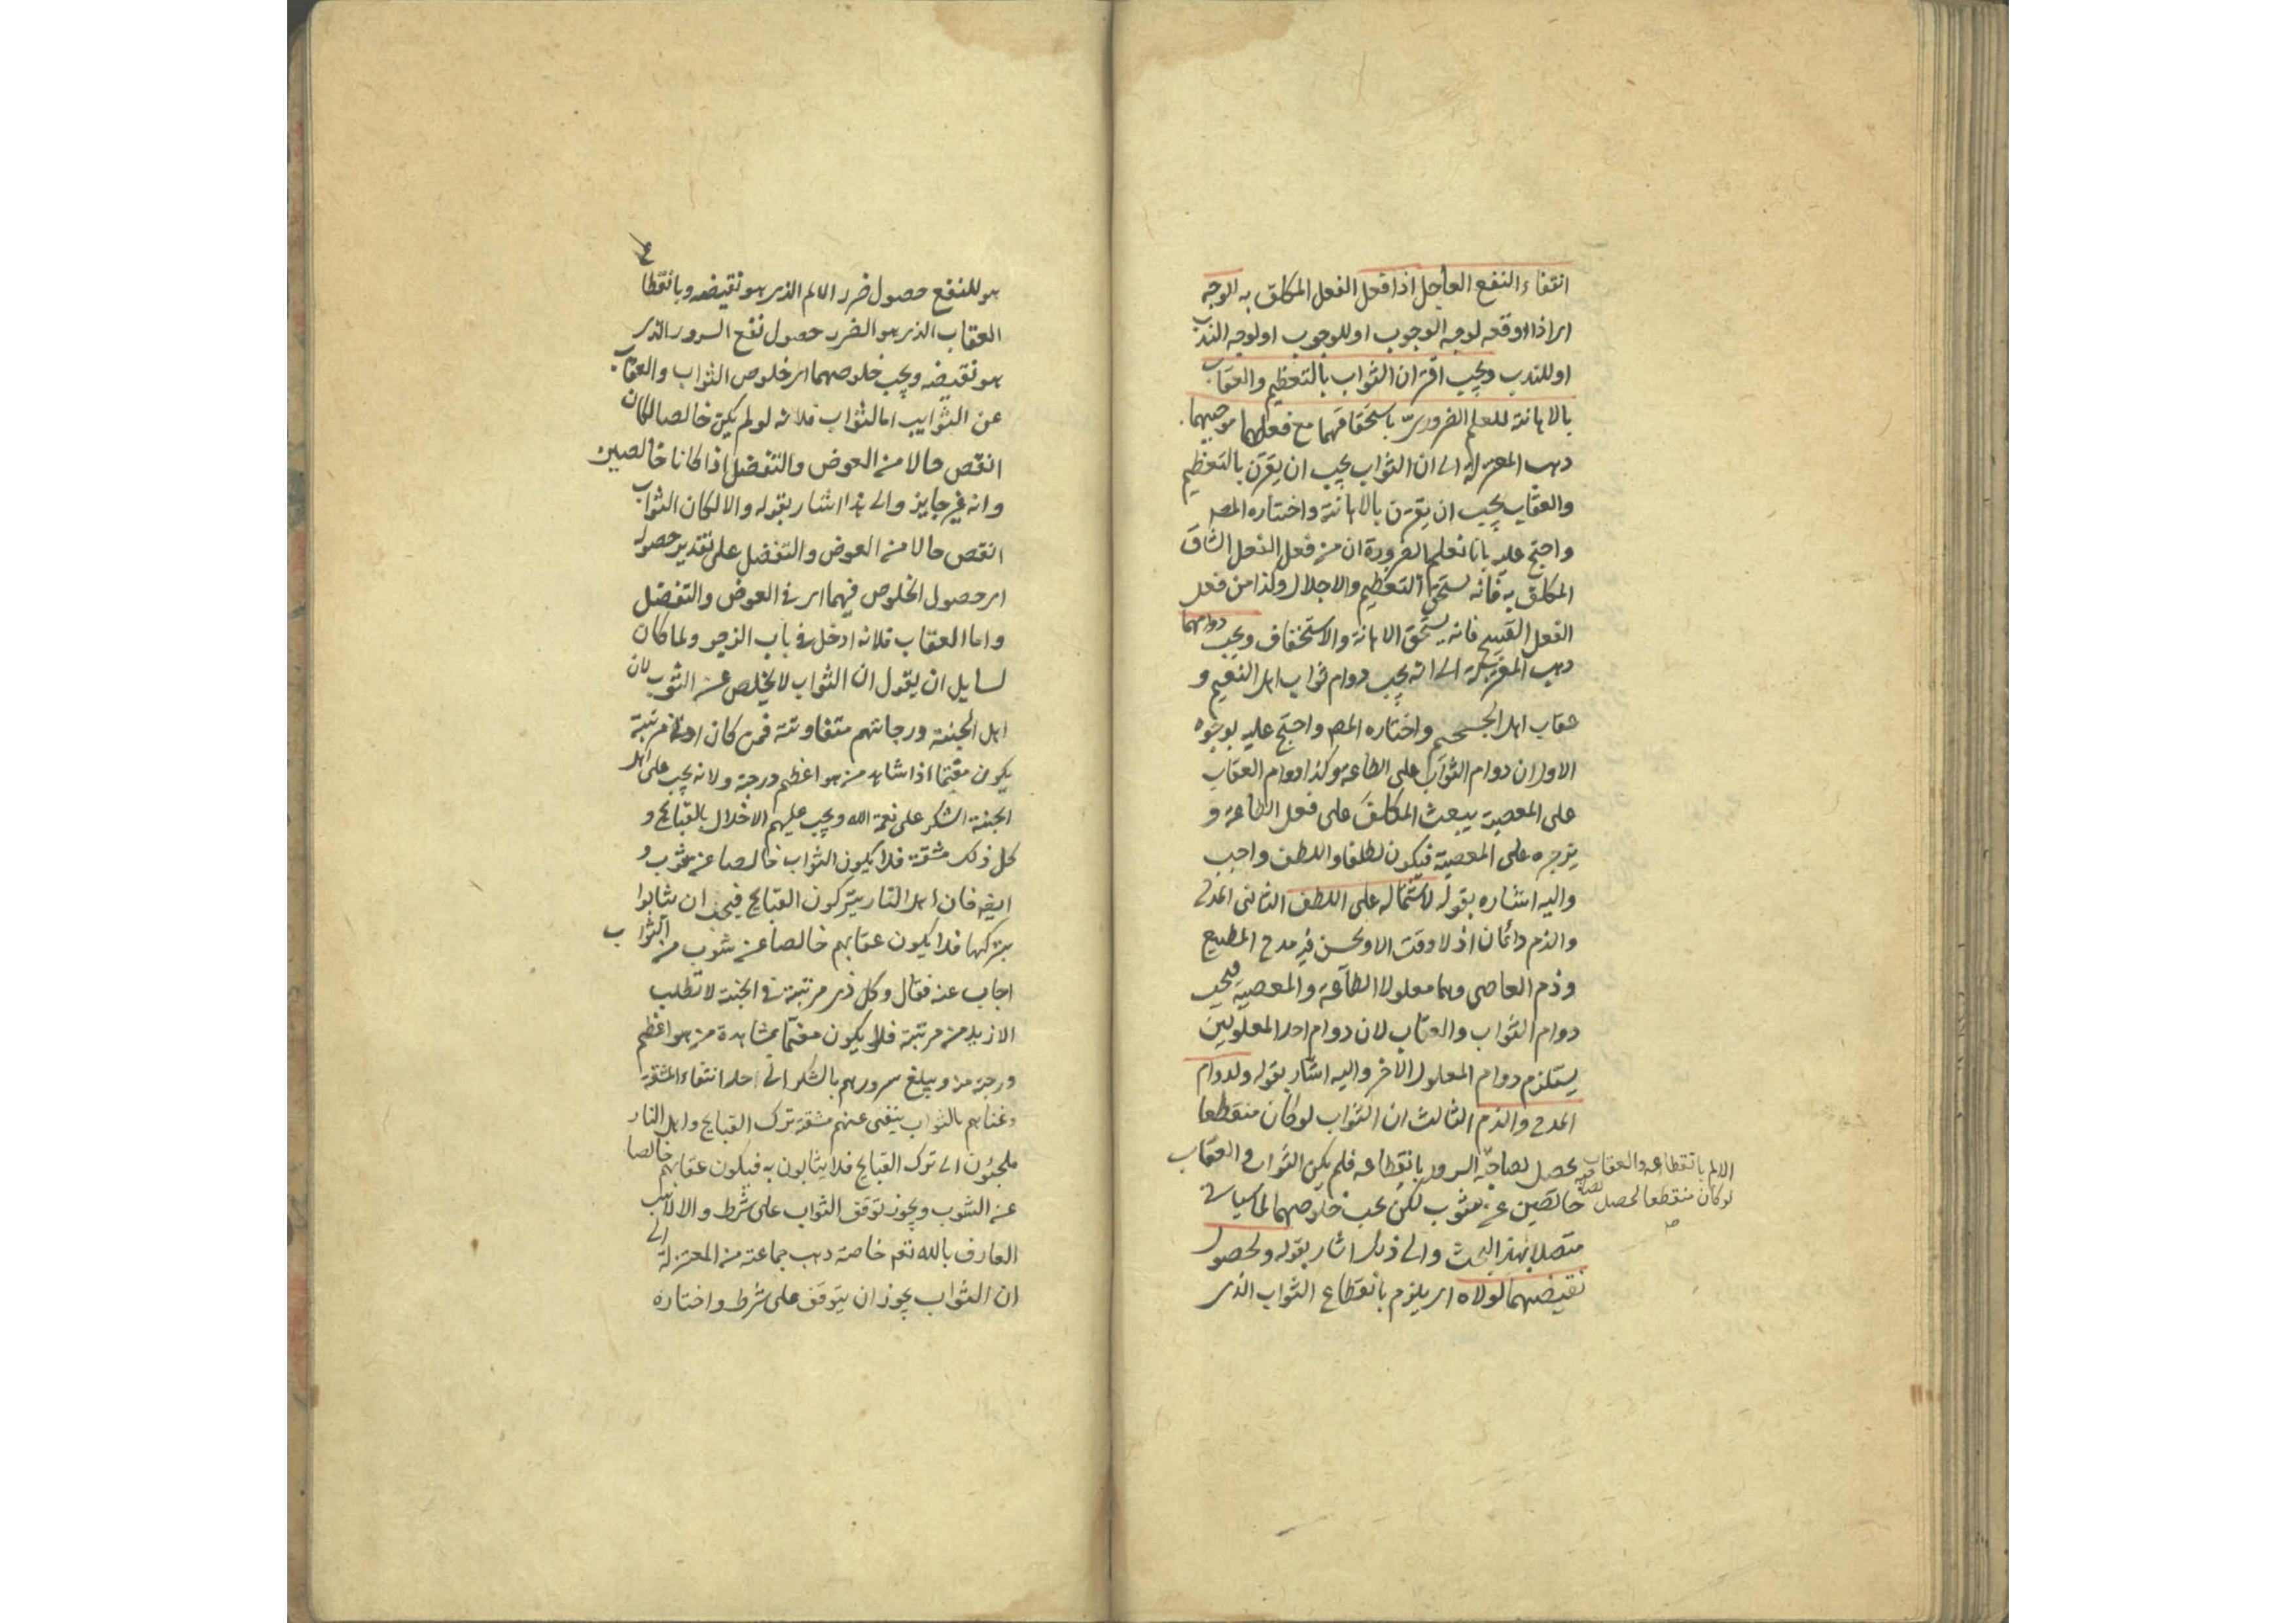 انتفاء النفع العاجل اذا فعل الفعل المكلف به لوجه
اى اذا اوقعه لوجه الوجوب او للوجوب او لوجه الندب
او للندب ويجب اقتران الثواب بالتعظيم والعقاب
بالاهانة للعلم الضرورى باستحقاقهما مع فعل موجبهما
ذهب المعتزلة الى ان الثواب يجب ان يقترن بالتعظيم
والعقاب يجب ان يقترن بالاهانة واختاره المص
واحتج عليه بانا نعلم بالضرورة ان من فعل الفعل الشاق
المكلف به فانه يستحق التعظيم والاجلال وكذا من فعل
الفعل القبيح فانه يستحق الاهانة والاستخفاف ويجب دوامهما
ذهب المعتزلة الى انه يجب دوام ثواب اهل النعيم و
عقاب اهل الجحيم واختاره المص واحتج عليه بوجوه
الاول ان دوام الثواب على الطاعة وكذا دوام العقاب
على المعصية يبعث المكلف على فعل الطاعة و
يزجره على المعصية فيكون لطفا واللطف واجب
واليه اشاره بقوله لاشتماله على اللطف الثانى المدح
والذم دائمان اذ لا وقت الا ويحسن فيه مدح المطيع
وذم العاصى وهما معلولا الطاعة والمعصية فيجب
دوام الثواب والعقاب لان دوام احد المعلولين
يستلزم دوام المعلول الاخر واليه اشار بقوله ولدوام
المدح والذم الثالث ان الثواب لو كان منقطعا
يحصل لصاحبه السرور بانقطاعه فلم يكن الثواب والعقاب
الالم بانقطاعه والعقاب
لو كان منقطعا لحصل
خالصين عن شوب لكن يجب خلوصهما لما سياتى
متصلا بهذا البحث والى ذلك اشار بقوله ولحصول
نقيضهما لولاه اى يلزم بانقطاع الثواب الذى
هو للنفع حصول ضرر الالم الذى هو نقيضه وبانقطاع
العقاب الذى هو الضرر حصول نفع السرور الذى
هو نقيضه ويجب خلوصهما اى خلوص الثواب والعقاب
عن الشوايب اما الثواب فلانه لو لم يكن خالصا لكان
انقص حالا من العوض والتفضل اذا كانا خالصين
وانه غير جايز والى هذا اشار بقوله والا لكان الثواب
انقص حالا من العوض والتفضل على تقدير حصوله
اى حصول الخلوص فيهما اى فى العوض والتفضل
واما العقاب فلانه ادخل فى باب الزجر ولما كان
لسايل ان يقول ان الثواب لا يخلص عن الشوب لان
اهل الجنة درجاتهم متفاوتة فمن كان ادنى مرتبة
يكون مغتما اذا شاهد من هو اعظم درجة ولانه يجب على اهل
الجنة الشكر على نعمة الله ويجب عليهم الاخلال بالقبايح و
كل ذلك مشقة فلا يكون الثواب خالصا عن شوب و
ايضا فان اهل النار يتركون القبايح فيجب ان يثابوا
بتركها فلا يكون عقابهم خالصا عن شوب من الثواب
اجاب عنه فقال وكل ذى مرتبة فى الجنة لا تطلب
الازيد من مرتبة فلا يكون مغتما بمشاهدة من هو اعظم
درجة منه ويبلغ سرورهم بالشكر الى حد انتفاء المشقة
وغناهم بالثواب ينفى عنهم مشقة ترك القبايح واهل النار
ملجئون الى ترك القبايح فلا يثابون به فيكون عقابهم خالصا
عن الشوب ويجوز توقف الثواب على شرط والا لاثيب
العارف بالله تعم خاصة ذهب جماعة من المعتزلة الى
ان الثواب يجوز ان يتوقف على شرط واختاره